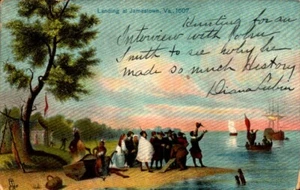 Landing at Jamestown, Va., 1607.
Hunting for an
Interview with John
Smith to see why he
made so much History
Diana